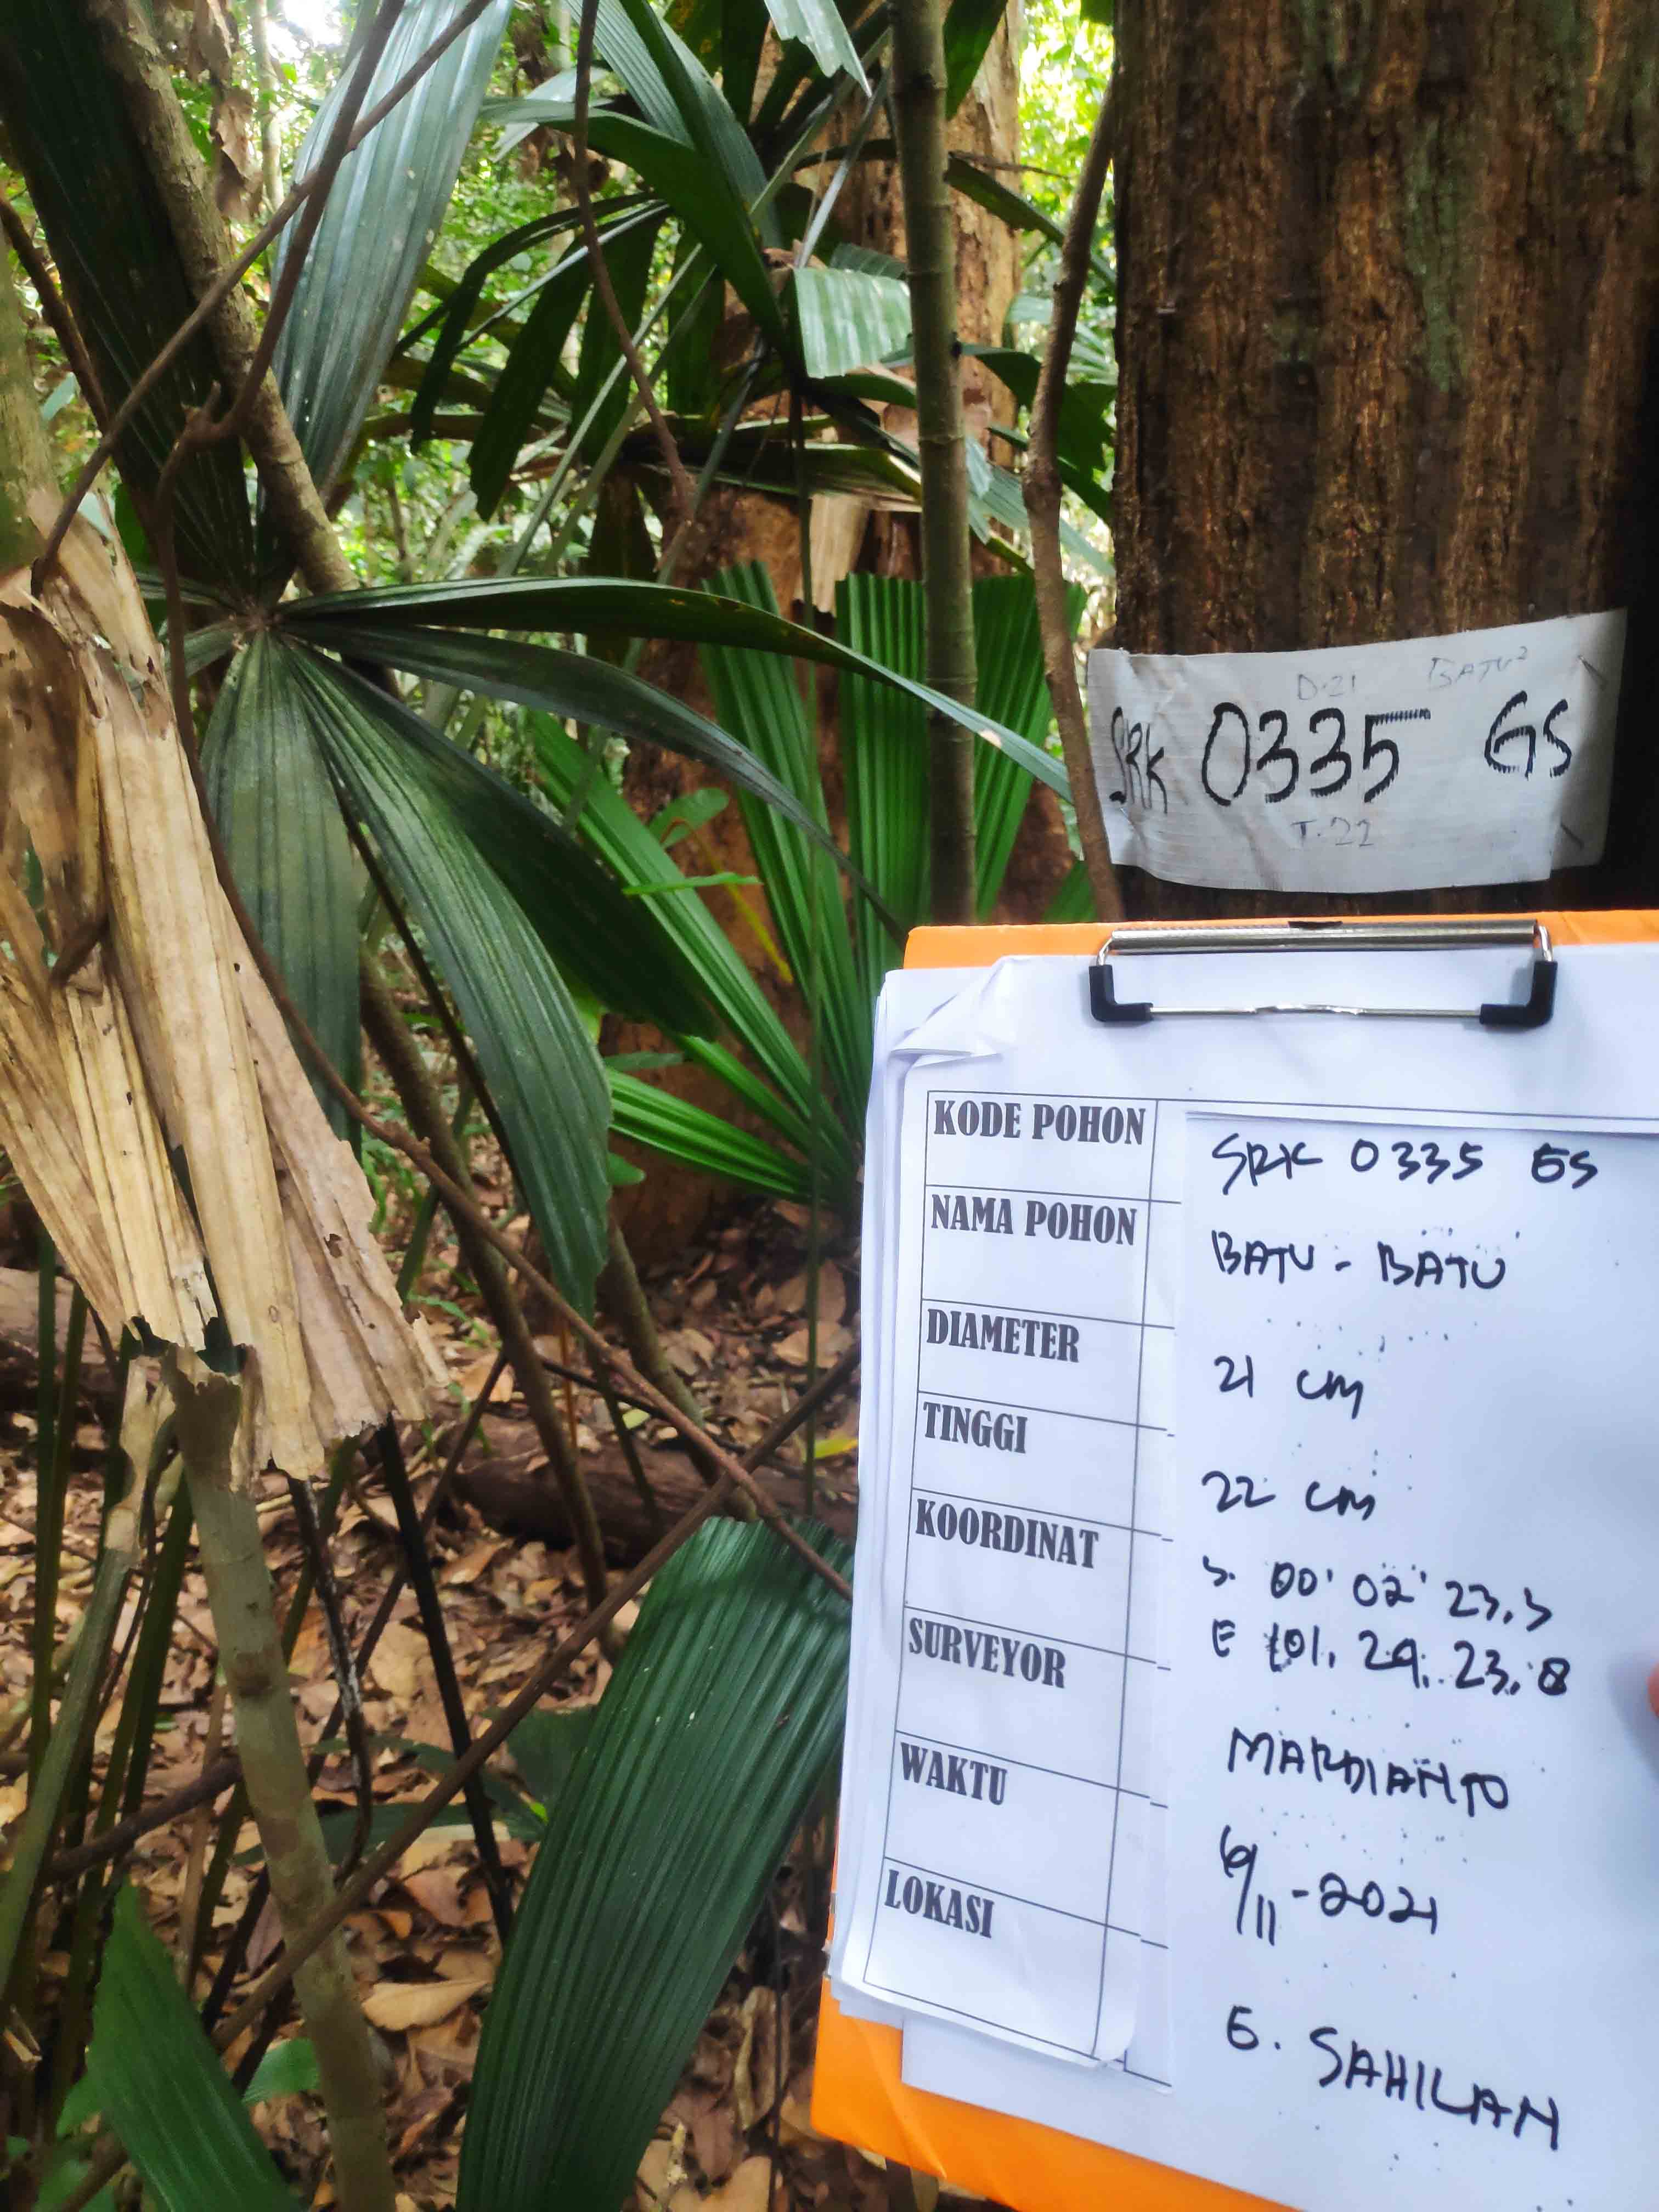 D.21 BATU²
SRK 0335 GS
T.22
KODE POHON SRK 0335 GS
NAMA POHON BATU - BATU
DIAMETER 21 cm
TINGGI 22 cm
KOORDINAT S. 00' 02' 23,3
E 101. 29. 23,8
SURVEYOR MARDIANTO
WAKTU 6/11-2021
LOKASI G. SAHILAN